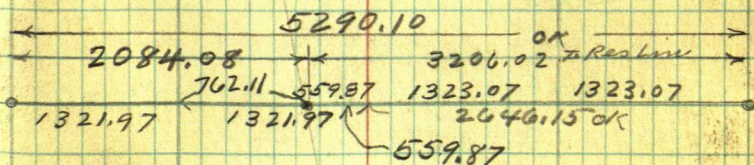 5290.10
OK
2084.08 3206.02 Res Line
762.11 559.87 1323.07 1323.07
1321.97 1321.97 2646.15 OK
559.87